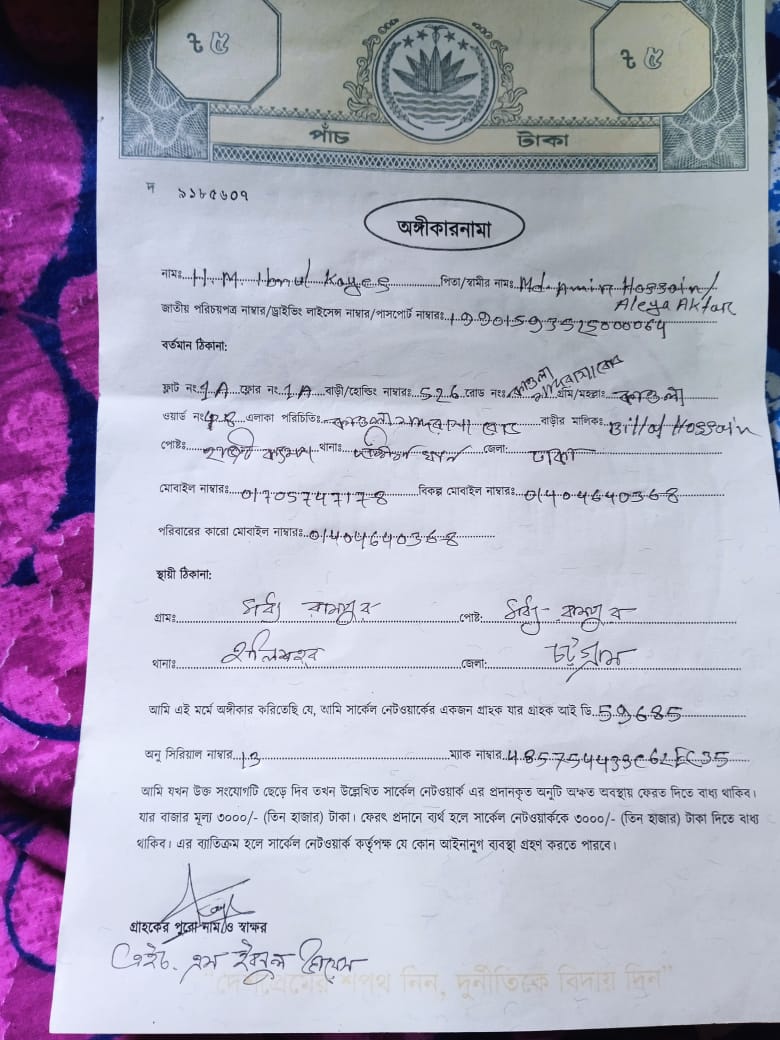 ৳ ৫ ৳ ৫
পাঁচ টাকা
দ ৯১৮৫৬০৭
অঙ্গীকারনামা
নামঃ H.M. Ibnul Kayes পিতা/স্বামীর নামঃ Md. Amin Hossain/
Aleya Aktar
জাতীয় পরিচয়পত্র নাম্বার/ড্রাইভিং লাইসেন্স নাম্বার/পাসপোর্ট নাম্বারঃ 19901593525000064
বর্তমান ঠিকানা:
ফ্লাট নং: 1A ফ্লোর নং: 1A বাড়ী/হোল্ডিং নাম্বারঃ 526 রোড নংঃ কাওলা গ্রাম/মহল্লাঃ কাওলা
ওয়ার্ড নং এলাকা পরিচিতিঃ কাওলা মাদরাসা রোড বাড়ীর মালিকঃ Billal Hossain
পোষ্টঃ থানাঃ দক্ষিণ খান জেলা: ঢাকা
মোবাইল নাম্বারঃ 01705747178 বিকল্প মোবাইল নাম্বারঃ 01404640368
পরিবারের কারো মোবাইল নাম্বারঃ 01404640368
স্থায়ী ঠিকানা:
গ্রামঃ মধ্য রামপুর পোষ্ট: মধ্য-রামপুর
থানাঃ হালিশহর জেলা: চট্টগ্রাম
আমি এই মর্মে অঙ্গীকার করিতেছি যে, আমি সার্কেল নেটওয়ার্কের একজন গ্রাহক যার গ্রাহক আই ডি 59685
অনু সিরিয়াল নাম্বার 13 ম্যাক নাম্বার 485754433C62EC35
আমি যখন উক্ত সংযোগটি ছেড়ে দিব তখন উল্লেখিত সার্কেল নেটওয়ার্ক এর প্রদানকৃত অনুটি অক্ষত অবস্থায় ফেরত দিতে বাধ্য থাকিব।
যার বাজার মূল্য ৩০০০/- (তিন হাজার) টাকা। ফেরৎ প্রদানে ব্যর্থ হলে সার্কেল নেটওয়ার্ককে ৩০০০/- (তিন হাজার) টাকা দিতে বাধ্য
থাকিব। এর ব্যতিক্রম হলে সার্কেল নেটওয়ার্ক কর্তৃপক্ষ যে কোন আইনানুগ ব্যবস্থা গ্রহণ করতে পারবে।
গ্রাহকের পুরো নাম ও স্বাক্ষর
এইচ. এম ইবনুল কায়েস
"দেশপ্রেমের শপথ নিন, দুর্নীতিকে বিদায় দিন"